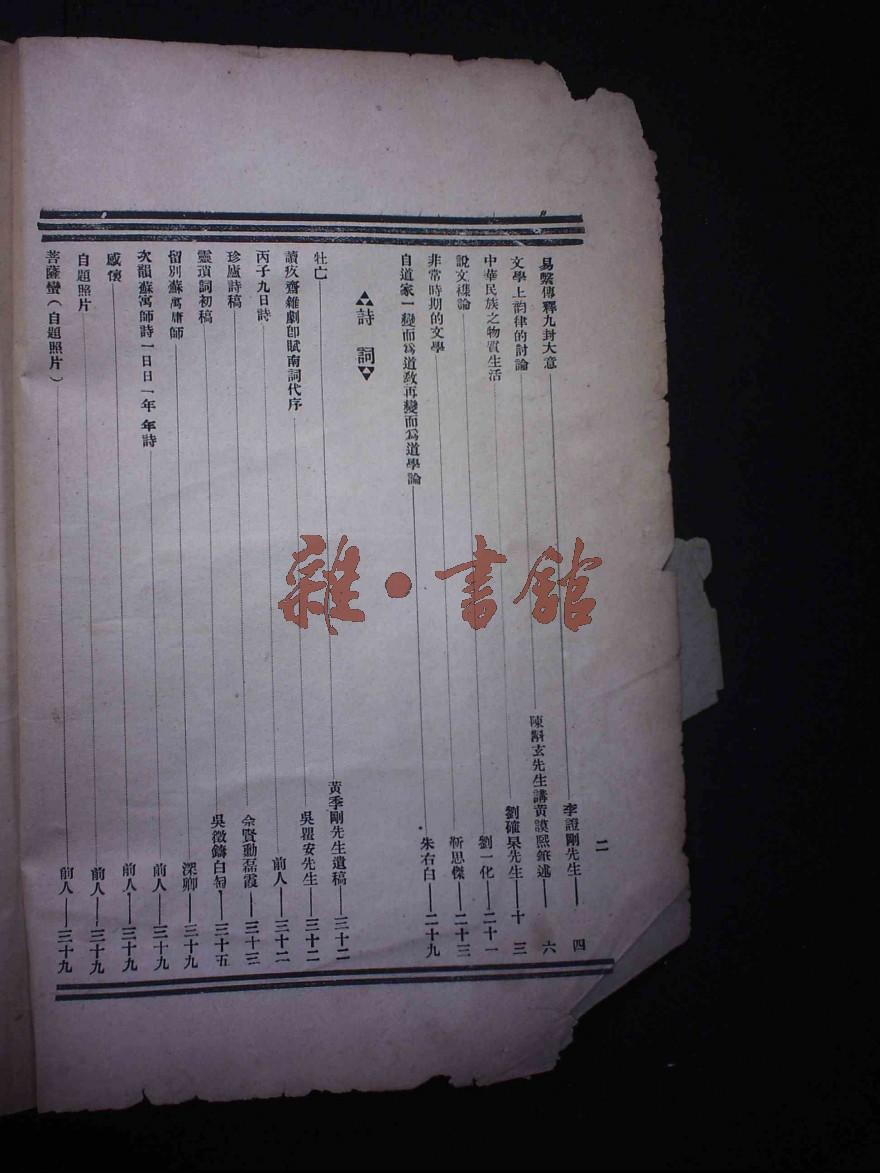 二
易繫傳釋九封大意 李證剛先生 四
文學上韵律的討論 陳斠玄先生講黄謨熙筆述 六
中華民族之物質生活 劉確杲先生 十三
說文襍論 劉一化 二十一
非常時期的文學 靳思傑 二十三
自道家一變而爲道敎再變而爲道學論 朱右白 二十九
詩詞
牡亡 黃季剛先生遺稿 三十二
讀疚齋雜劇卽賦南詞代序 吳瞿安先生 三十二
丙子九日詩 前人 三十二
珍廬詩稿 余賢勳磊霞 三十三
靈瑣詞初稿 吳徵鑄白匋 三十五
留別蘇寓庸師 深卿 三十九
次韻蘇寓師詩一日日一年年詩 前人 三十九
感懷 前人 三十九
自題照片 前人 三十九
菩薩蠻（自題照片） 前人 三十九
雜·書館